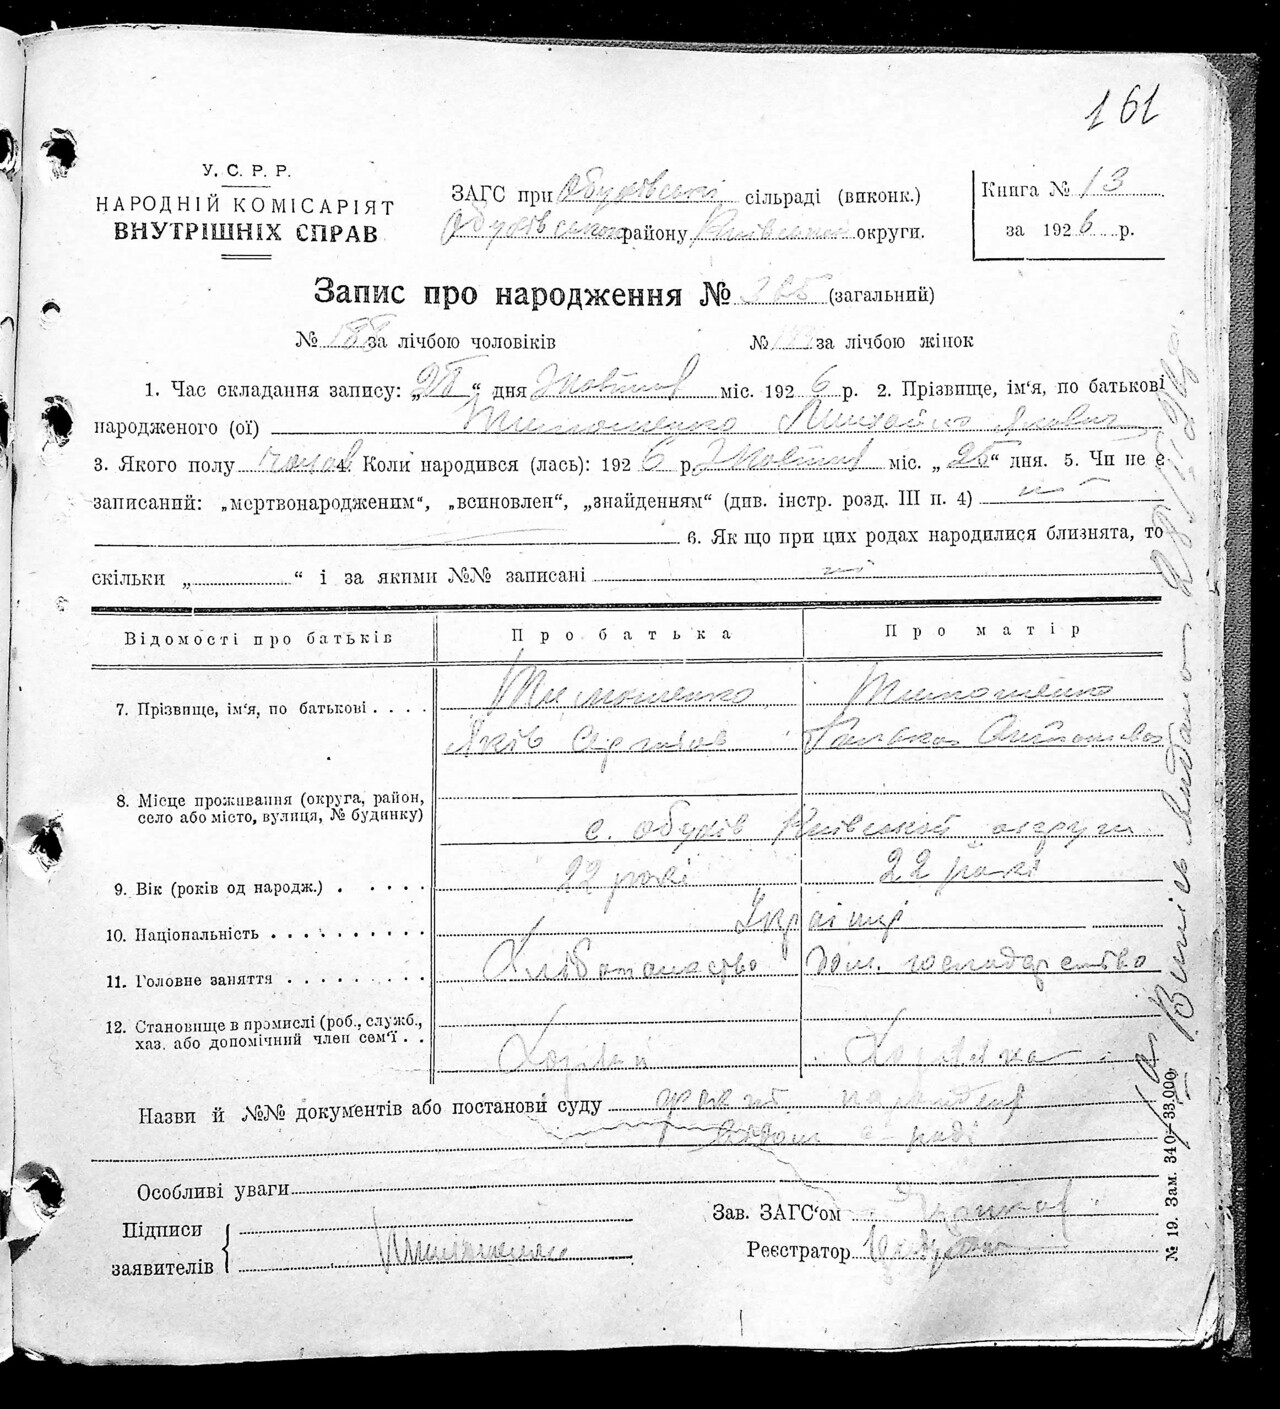 161
У. С. Р. Р.
НАРОДНІЙ КОМІСАРІЯТ
ВНУТРІШНІХ СПРАВ
ЗАГС при Обухівські сільраді (виконк.)
Обухівського району Київської округи.
Книга № 13
за 1926 р.
Запис про народження № (загальний)
№ 188 за лічбою чоловіків
№ за лічбою жінок
1. Час складання запису: „28“ дня Жовтня міс. 1926 р. 2. Прізвище, ім‘я, по батькові
народженого (ої) Тимошенко Михайло Якович
3. Якого полу чолов 4. Коли народився (лась): 1926 р. Жовтня міс. „25“ дня. 5. Чи не є
записаний: „мертвонародженим“, „всиновлен“, „знайденням“ (див. інстр. розд. III п. 4) ні
6. Як що при цих родах народилися близнята, то
скільки „ “ і за якими №№ записані ні
Відомості про батьків
Про батька
Про матір
7. Прізвище, ім‘я, по батькові . . . .
Тимошенко
Тимошенко
Яків
Антонова
8. Місце проживання (округа, район,
село або місто, вулиця, № будинку)
с. Обухів Київської округи
9. Вік (років од народж.) . . . . .
22 років
22 років
10. Національність . . . . . . . . . .
Українці
11. Головне заняття . . . . . . . . .
Хлібопашество
Дом. господарство
12. Становище в промислі (роб., служб.,
хаз. або допомічний член сем‘ї . .
Хазяїн
Хазяйка
Назви й №№ документів або постанови суду
Особливі уваги
Підписи
заявителів
Тимошенко
Зав. ЗАГС‘ом
Реєстратор
№ 19. Зам. 340—33.000
Випись видана